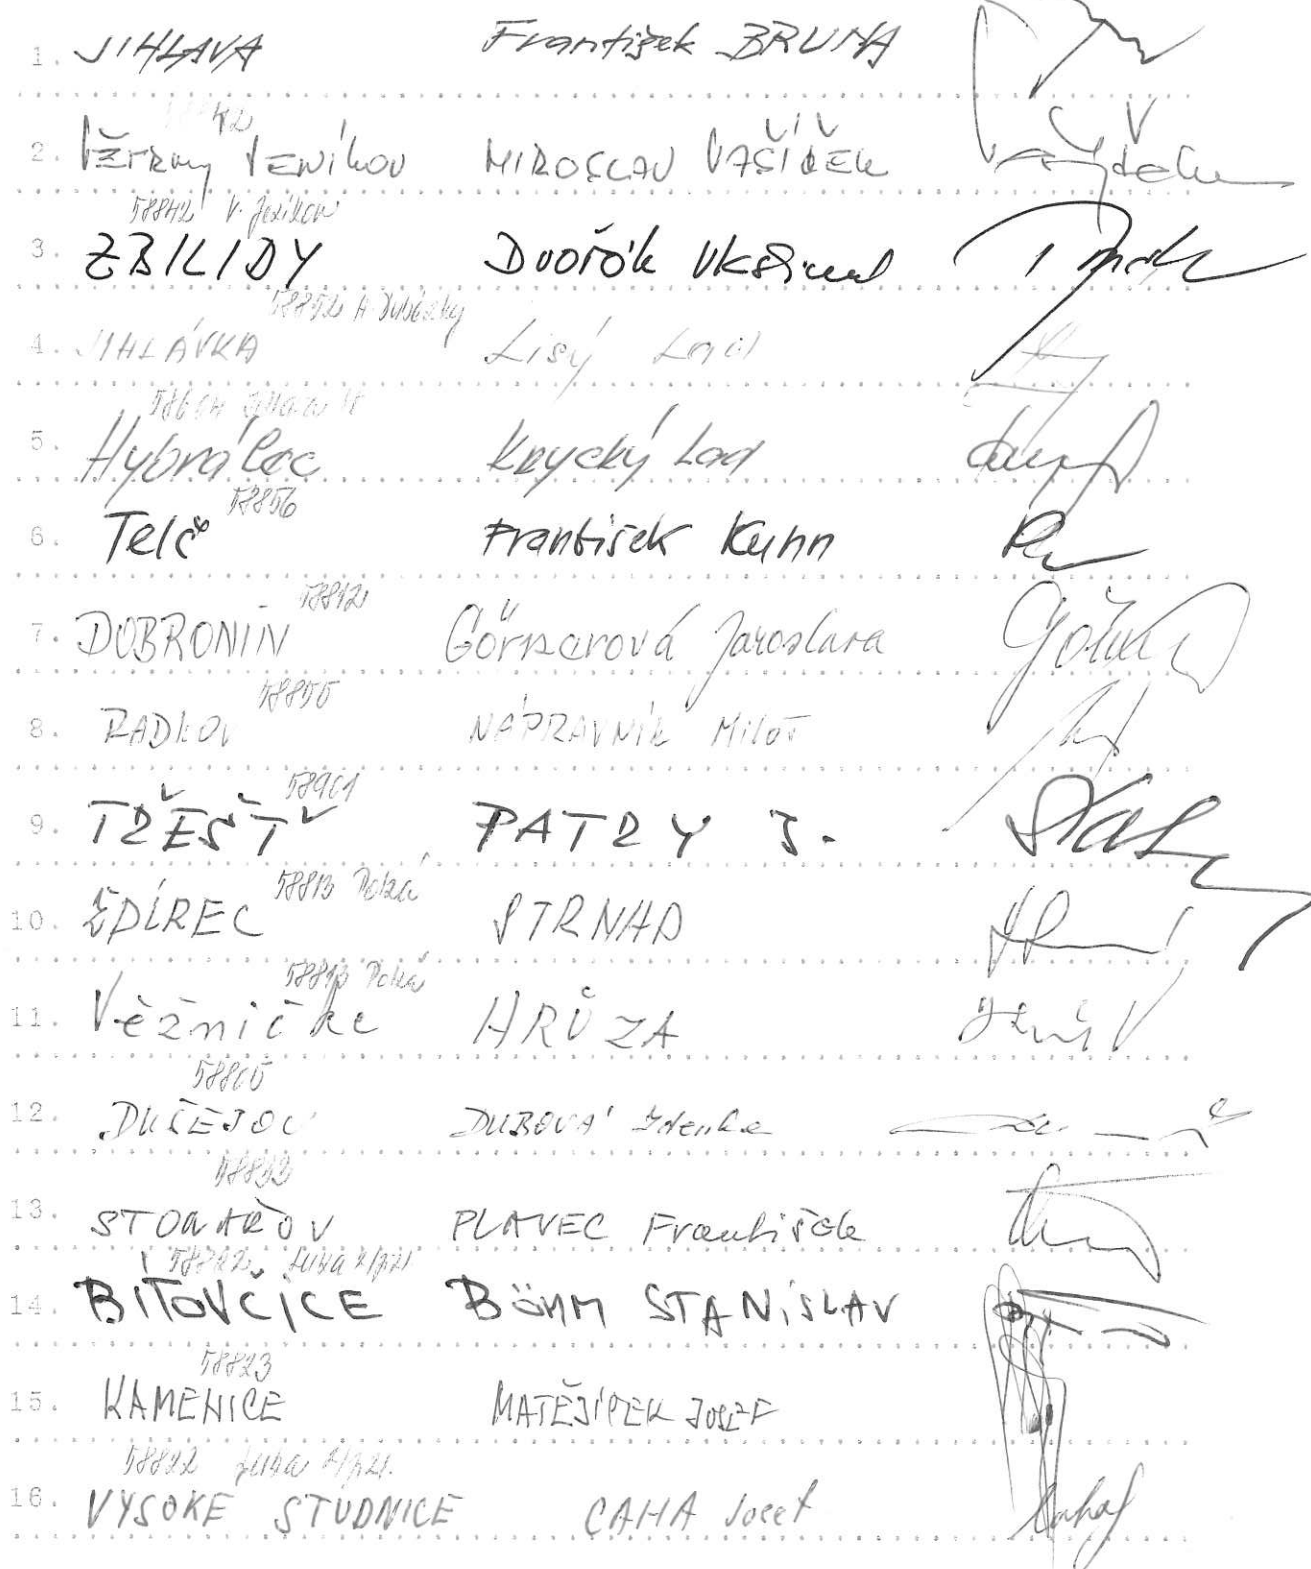 1. JIHLAVA František BRUNA
42
2. Větrný Jeníkov MIROSLAV VAŠÍČEK
58842 V. Jeníkov
3. ZBILIDY Dvořák
58852 H. Dubénky
4. JIHLÁVKA Lisý Lad
58604
5. Hybrálec Krycký Lad
58856
6. Telč František Kuhn
58812
7. DOBRONÍN Jaroslava
58855
8. RADKOV NÁPRAVNÍK MILOŠ
58901
9. TŘEŠŤ PATRY J.
58813 Polná
10. ŽDÍREC STRNAD
58813 Polná
11. Věžničke HRŮZA
58805
12. DUŠEJOV DUBOVÁ Zdenka
58833
13. STONAŘOV PLAVEC František
58822 Luka n/Jihl
14. BÍTOVČICE BÖHM STANISLAV
58823
15. KAMENICE MATĚJÍČEK JOSEF
58822 Luka n/Jihl.
16. VYSOKÉ STUDNICE CAHA Josef